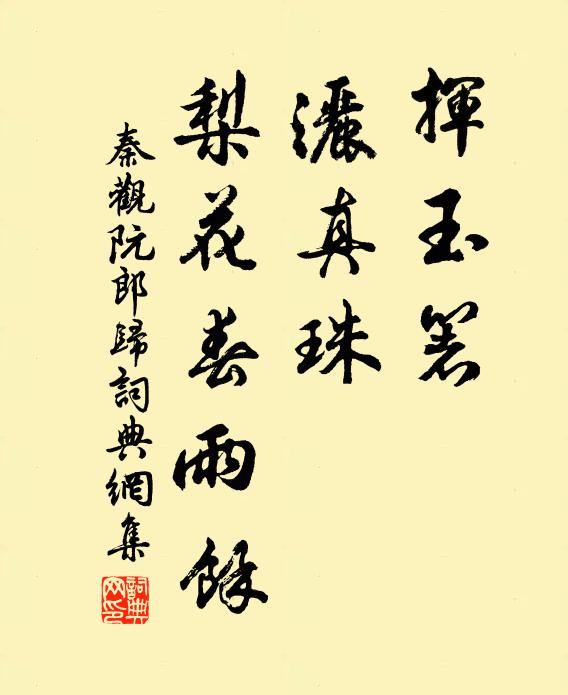 揮玉箸
灑真珠
梨花春雨餘
秦觀阮郎歸詞典網集
詞典網印